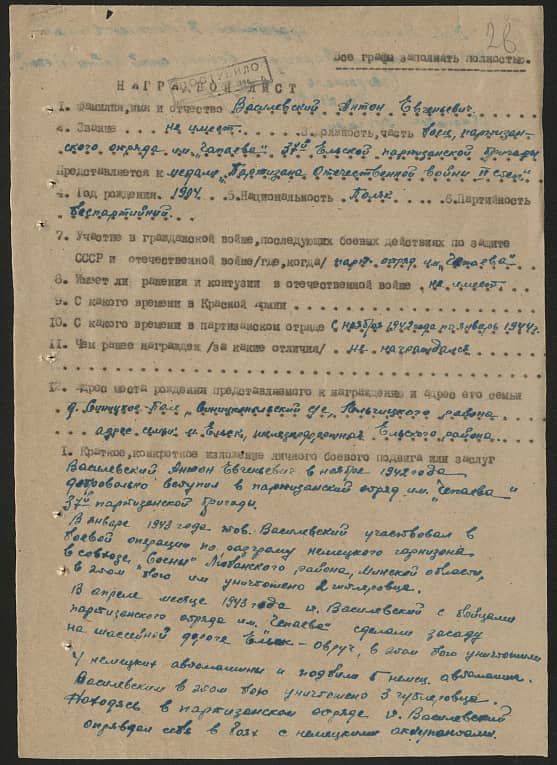 28
Все графы заполнять полностью.
ПОСТУПИЛО
НАГРАДНОЙ ЛИСТ
1. Фамилия,имя и отчество Василевский Антон Евгеньевич
2. Звание не имеет 3.Должность,часть боец партизан-
ского отряда им. "Чапаева" 37й Ельской партизанской бригады
Представляется к медали "Партизана Отечественной войны II степ."
4. Год рождения. 1904 5.Национальность Поляк 6.Партийность
беспартийный
7. Участие в гражданской войне,последующих боевых действиях по защите
СССР и отечественной войне/где,когда/ парт. отряд им. "Чепаева"
8. Имеет ли ранения и контузии в отечественной войне не имеет
9. С какого времени в Красной Армии
10. С какого времени в партизанском отряде с ноября 1942 года по январь 1944 г.
11. Чем ранее награжден /за какие отличия/ не награждался
12. Адрес места рождения представляемого к награждению и адрес его семьи
д. района
адрес семьи м. Ельск, Ельского района
1. Краткое,конкретное изложение личного боевого подвига или заслуг
Василевский Антон Евгеньевич в ноябре 1942 года
добровольно вступил в партизанский отряд им. "Чепаева"
37й партизанской бригады.
В январе 1943 года тов. Василевский участвовал в
боевой операции по разгрому немецкого гарнизона
в совхозе "Сосны" Любанского района, Минской области,
в этом бою им уничтожено 2 гитлеровца.
В апреле месяце 1943 года т. Василевский с бойцами
партизанского отряда им. "Чепаева" сделали засаду
на шоссейной дороге Ельск - Овруч, в этом бою уничтожили
4 немецких автомашины и подбили 5 немец. автомашин.
Василевским в этом бою уничтожено 3 гитлеровца.
Находясь в партизанском отряде т. Василевский
оправдал себя в боях с немецкими оккупантами.